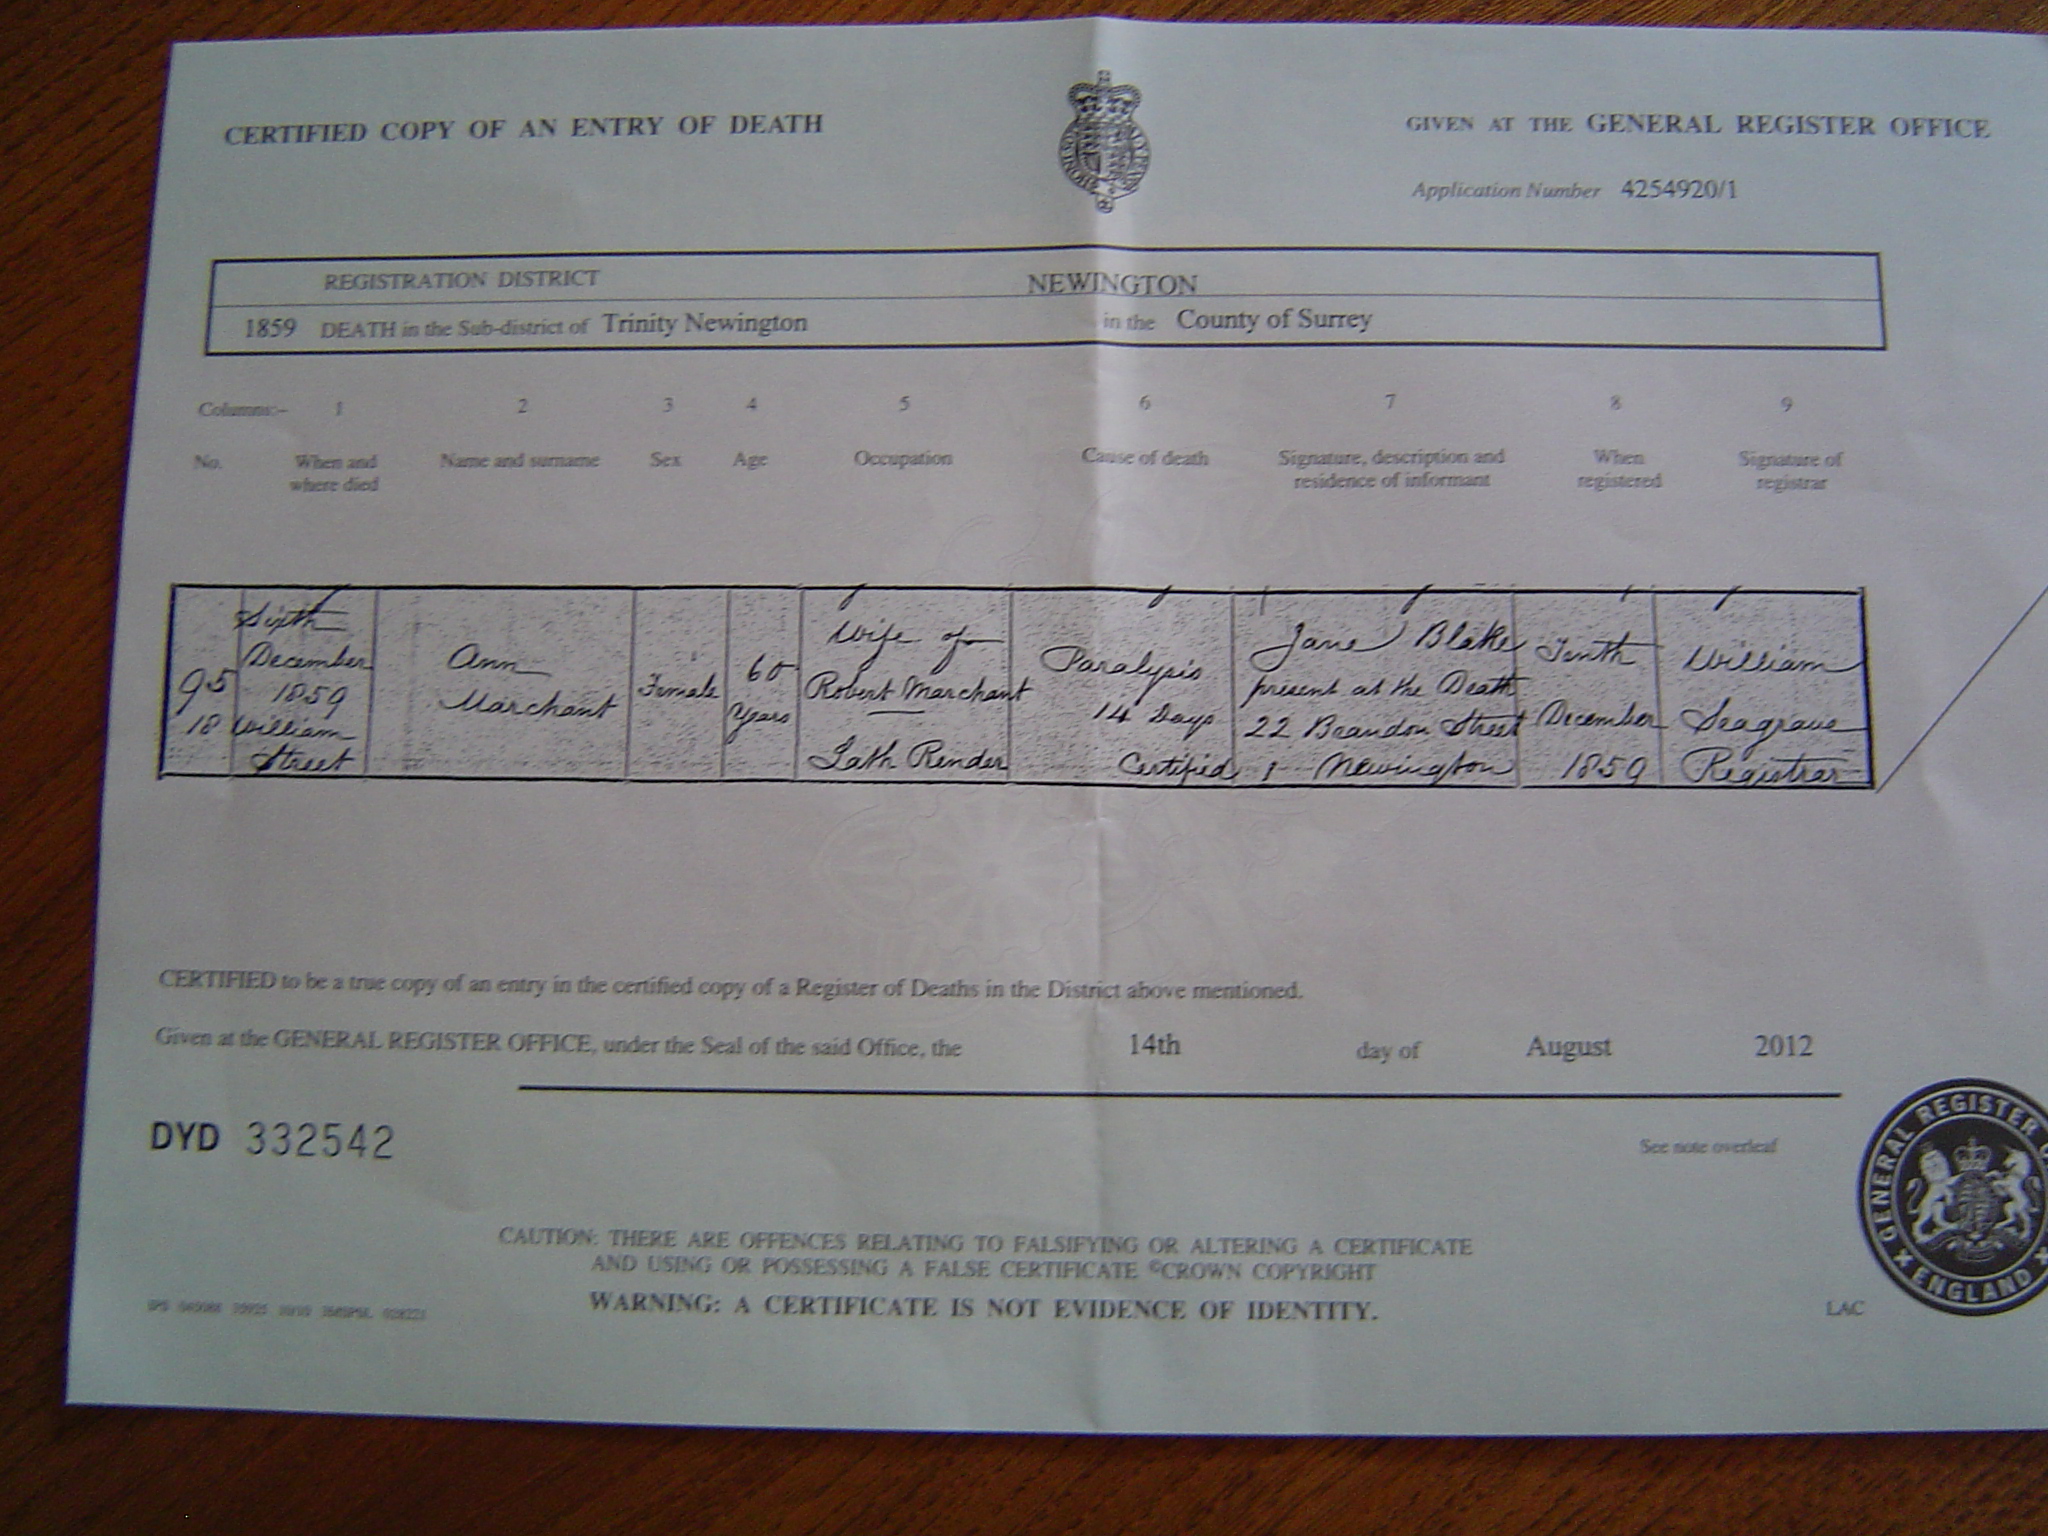 CERTIFIED COPY OF AN ENTRY OF DEATH
GIVEN AT THE GENERAL REGISTER OFFICE
Application Number 4254920/1
REGISTRATION DISTRICT NEWINGTON
1859 DEATH in the Sub-district of Trinity Newington in the County of Surrey
Columns:- 1 2 3 4 5 6 7 8 9
No. When and where died Name and surname Sex Age Occupation Cause of death Signature, description and residence of informant When registered Signature of registrar
95
Sixth
December
1859
18 William
Street
Ann
Marchant
Female
60
Years
Wife of
Robert Marchant
Lath Render
Paralysis
14 Days
Certified
Jane Blake
present at the Death
22 Brandon Street
Newington
Tenth
December
1859
William
Seagrave
Registrar
CERTIFIED to be a true copy of an entry in the certified copy of a Register of Deaths in the District above mentioned.
Given at the GENERAL REGISTER OFFICE, under the Seal of the said Office, the 14th day of August 2012
DYD 332542
See note overleaf
CAUTION: THERE ARE OFFENCES RELATING TO FALSIFYING OR ALTERING A CERTIFICATE
AND USING OR POSSESSING A FALSE CERTIFICATE ©CROWN COPYRIGHT
WARNING: A CERTIFICATE IS NOT EVIDENCE OF IDENTITY.
LAC
GENERAL REGISTER
ENGLAND